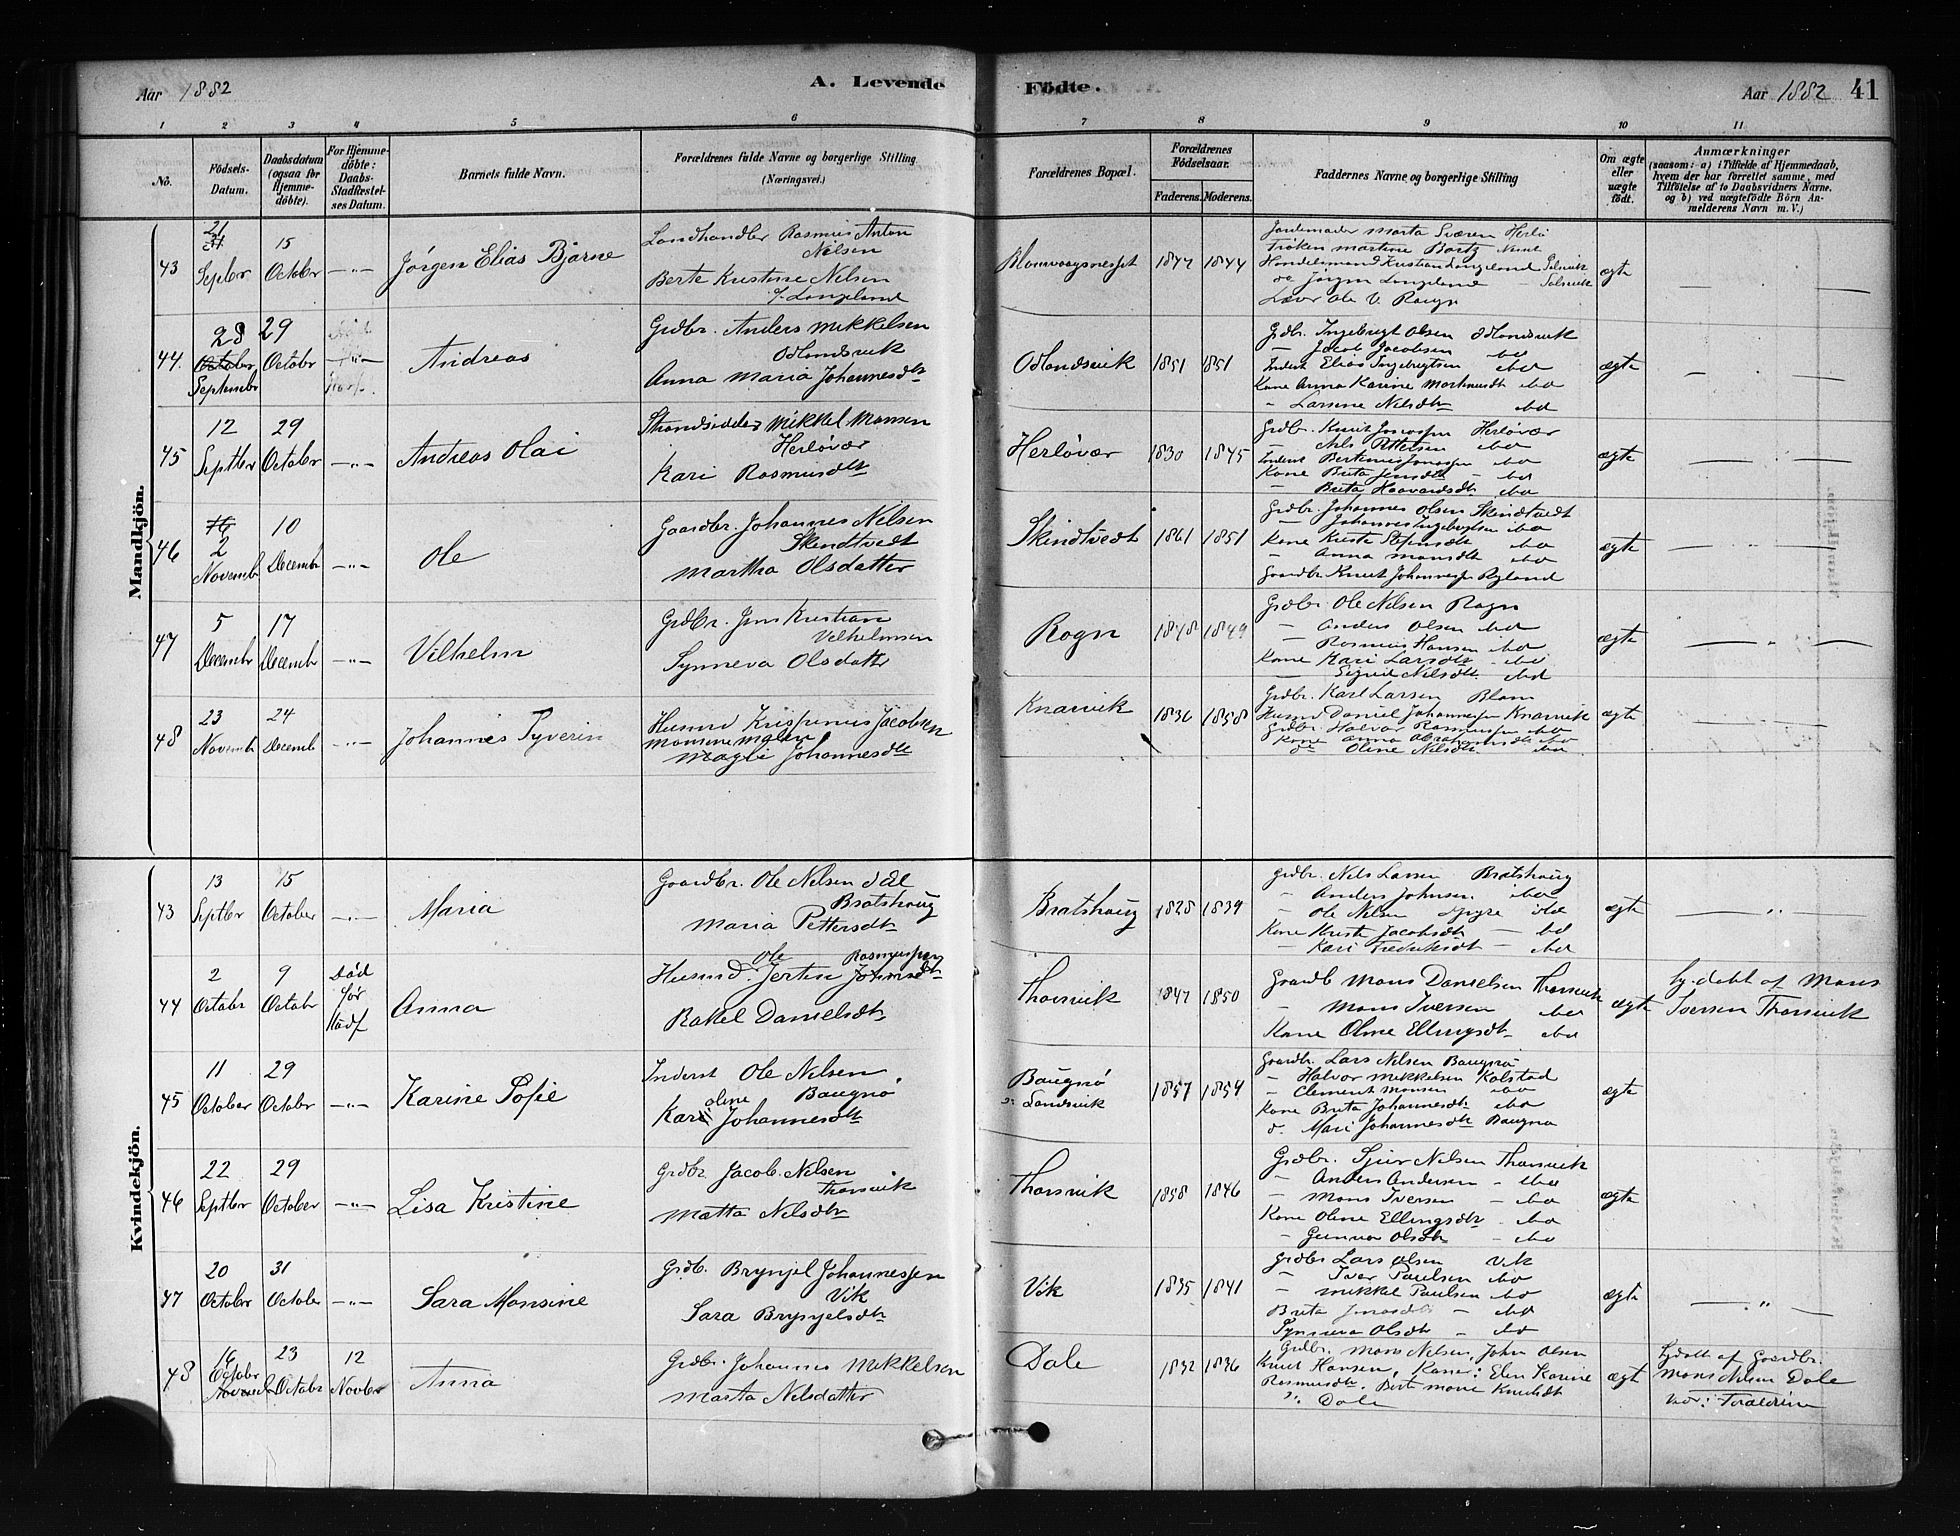 Aar 1882
A. Levende
Födte.
Aar 1882
41
1 2 3 4 5 6 7 8 9 10 11
No.
Födsels-Datum.
Daabsdatum (ogsaa for Hjemmedöbte).
For Hjemmedöbte: Daabs-Stadfæstelses Datum.
Barnets fulde Navn.
Forældrenes fulde Navne og borgerlige Stilling.
(Næringsvei.)
Forældrenes Bopæl.
Forældrenes Födselsaar.
Faderens. Moderens.
Faddernes Navne og borgerlige Stilling
Om ægte eller uægte födt.
Anmærkninger
(saasom: a) i Tilfælde af Hjemmedaab, hvem der har forrettet samme, med Tilföielse af to Daabsvidners Navne, og b) ved uægtefödte Börn Anmelderens Navn m. V.)
Mandkjön.
43
21 Septbr
15 October
Jørgen Elias Bjarne
Landhandler Rasmus Anton
Nilsen
Berte Kristine Nilsen
f. Langeland
Blomvaagnesset
1844
Jordemoder Marta Sværen Herlø
Frøken Martine Bortz
Handelsmand Kristian Langeland Solsvik
do Jörgen Langeland - Solsvik
Lærer Ole V. Rogn
ægte
44.
28 October Septembr
29 October
Andreas
Grdbr. Anders Mikkelsen
Odlandsvik
Anna Maria Johannesdtr
Odlandsvik
1851 1851
Grdbr. Ingebrigt Olsen Odlandsvik
- Jacob Jacobsen ibd
Inderst Elias Ingebrigtsen ibd
Kone Anna Karine Martinusdt ibd
- Larsine Nilsdtr ibd
ægte
45
12 Septbr
29 October
Andreas Olai
Strandsidder Mikkel Monsen
Herløvær
Kari Rasmusdtr
Herløvær
1830 1845
Grdbr. Knut Jonassen Herløvær
- Nils Pettersen ibd
Inderst Bertinus Jonassen ibd
Kone Brita Jensdtr - ibd
- Brita Haavardsdtr ibd
ægte
46
2 Novembr
10 Decembr
Ole
Gaardbr. Johannes Nilsen
Skindtvedt
Martha Olsdatter
Skindtvedt
1861 1851
Grdbr. Johannes Olsen Skindtvedt
- Johannes Ingebrigtsen ibd
Kone Kirsti Stefensdtr ibd
- Anna Monsdtr ibd
Gaardbr Knut Johannessen Ryland
ægte
47
5 Decembr
17 Decembr
Vilhelm
Grdbr. Jens Kristian
Vilhelmsen
Synneva Olsdatter
Rogn
1848 1849
Grdbr. Ole Nilsen Rogn
- Anders Olsen ibd
- Rasmus Hansen ibd
Kone Kari Larsdtr - ibd
- Sigrid Nilsdtr. ibd
ægte
48
23 Novembr
24 Decembr
Johannes Syverin
Husmd Krispinus Jacobsen
Magli Johannesdtr
Knarvik
1836 1858
Grdbr. Karl Larsen Blom
Husmd Daniel Johannessen Knarvik
Grdbr. Halvor Rasmussen ibd
Kone Anna Abrahamsdtr ibd
do Oline Nilsdtr ibd
ægte
Kvindekjön.
43
13 Septbr
15 October
Maria
Gaardbr. Ole Nilsen
Bratshaug
Maria Pettersdtr
Bratshaug
1828 1839
Grdbr. Nils Larsen Bratshaug
- Anders Johnsen ibd
- Ole Nilsen
Kone Kirsti Jacobsdtr - ibd
- Kari Fredriksdt - ibd
ægte
44
2 Octobr
9 Octobr
Död för Stadf
Anna
Ole Rasmussen
Husmd.
Rakel Danielsdtr
Thorsvik
1847 1850
Gaardb Mons Danielsen Thorsvik
- Mons Iversen ibd
Kone Oline Ellingsdtr ibd
ægte
hj. døbt af Mons
Iversen Thorsvik
45
11 October
29 October
Karine Sofie
Inderst Ole Nilsen
Baugnø
Karoline Johannesdtr
Baugnø
Landsvik
1857 1854
Gaardbr. Lars Nilsen Baugnø
- Halvor Mikkelsen Kolstad
- Clement Monsen ibd
Kone Brita Johannesdtr ibd
d. Mari Johannesdtr Baugnø
ægte
46
22 Septbr
29 October
Lisa Kristine
Grdbr Jacob Nilsen
Thorsvik
Matta Nilsdtr
Thorsvik
1858 1846
Grdbr. Sjur Nilsen Thorsvik
- Anders Andersen - ibd
- Mons Iversen - ibd
Kone Oline Ellingsdtr - ibd
- Gunvor Olsdtr - ibd
ægte
47
20 Octobr
31 October
Sara Monsine
Grdb. Brynjel Johannessen
Vik
Sara Brynjelsdtr
Vik
1835 1841
Grdbr Lars Olsen Vik
- Iver Paulsen ibd
- Mikkel Paulsen ibd
Brita Jonasdtr - ibd
Synneva Olsdtr - ibd
ægte
48
16 October
23 Octobr
12 Novber
Anna
Grdbr. Johannes Mikkelsen
Marta Nilsdatter
Dale
1832 1836
Grdbr. Mons Nilsen, John Olsen
Knut Hansen, Kone: Elen Karine
Rasmusdtr. Berte Marie Knutsdt
Dale
ægte
hj.døbt af Gaardbr.
Mons Nilsen Dale
Vidner: Forældrene